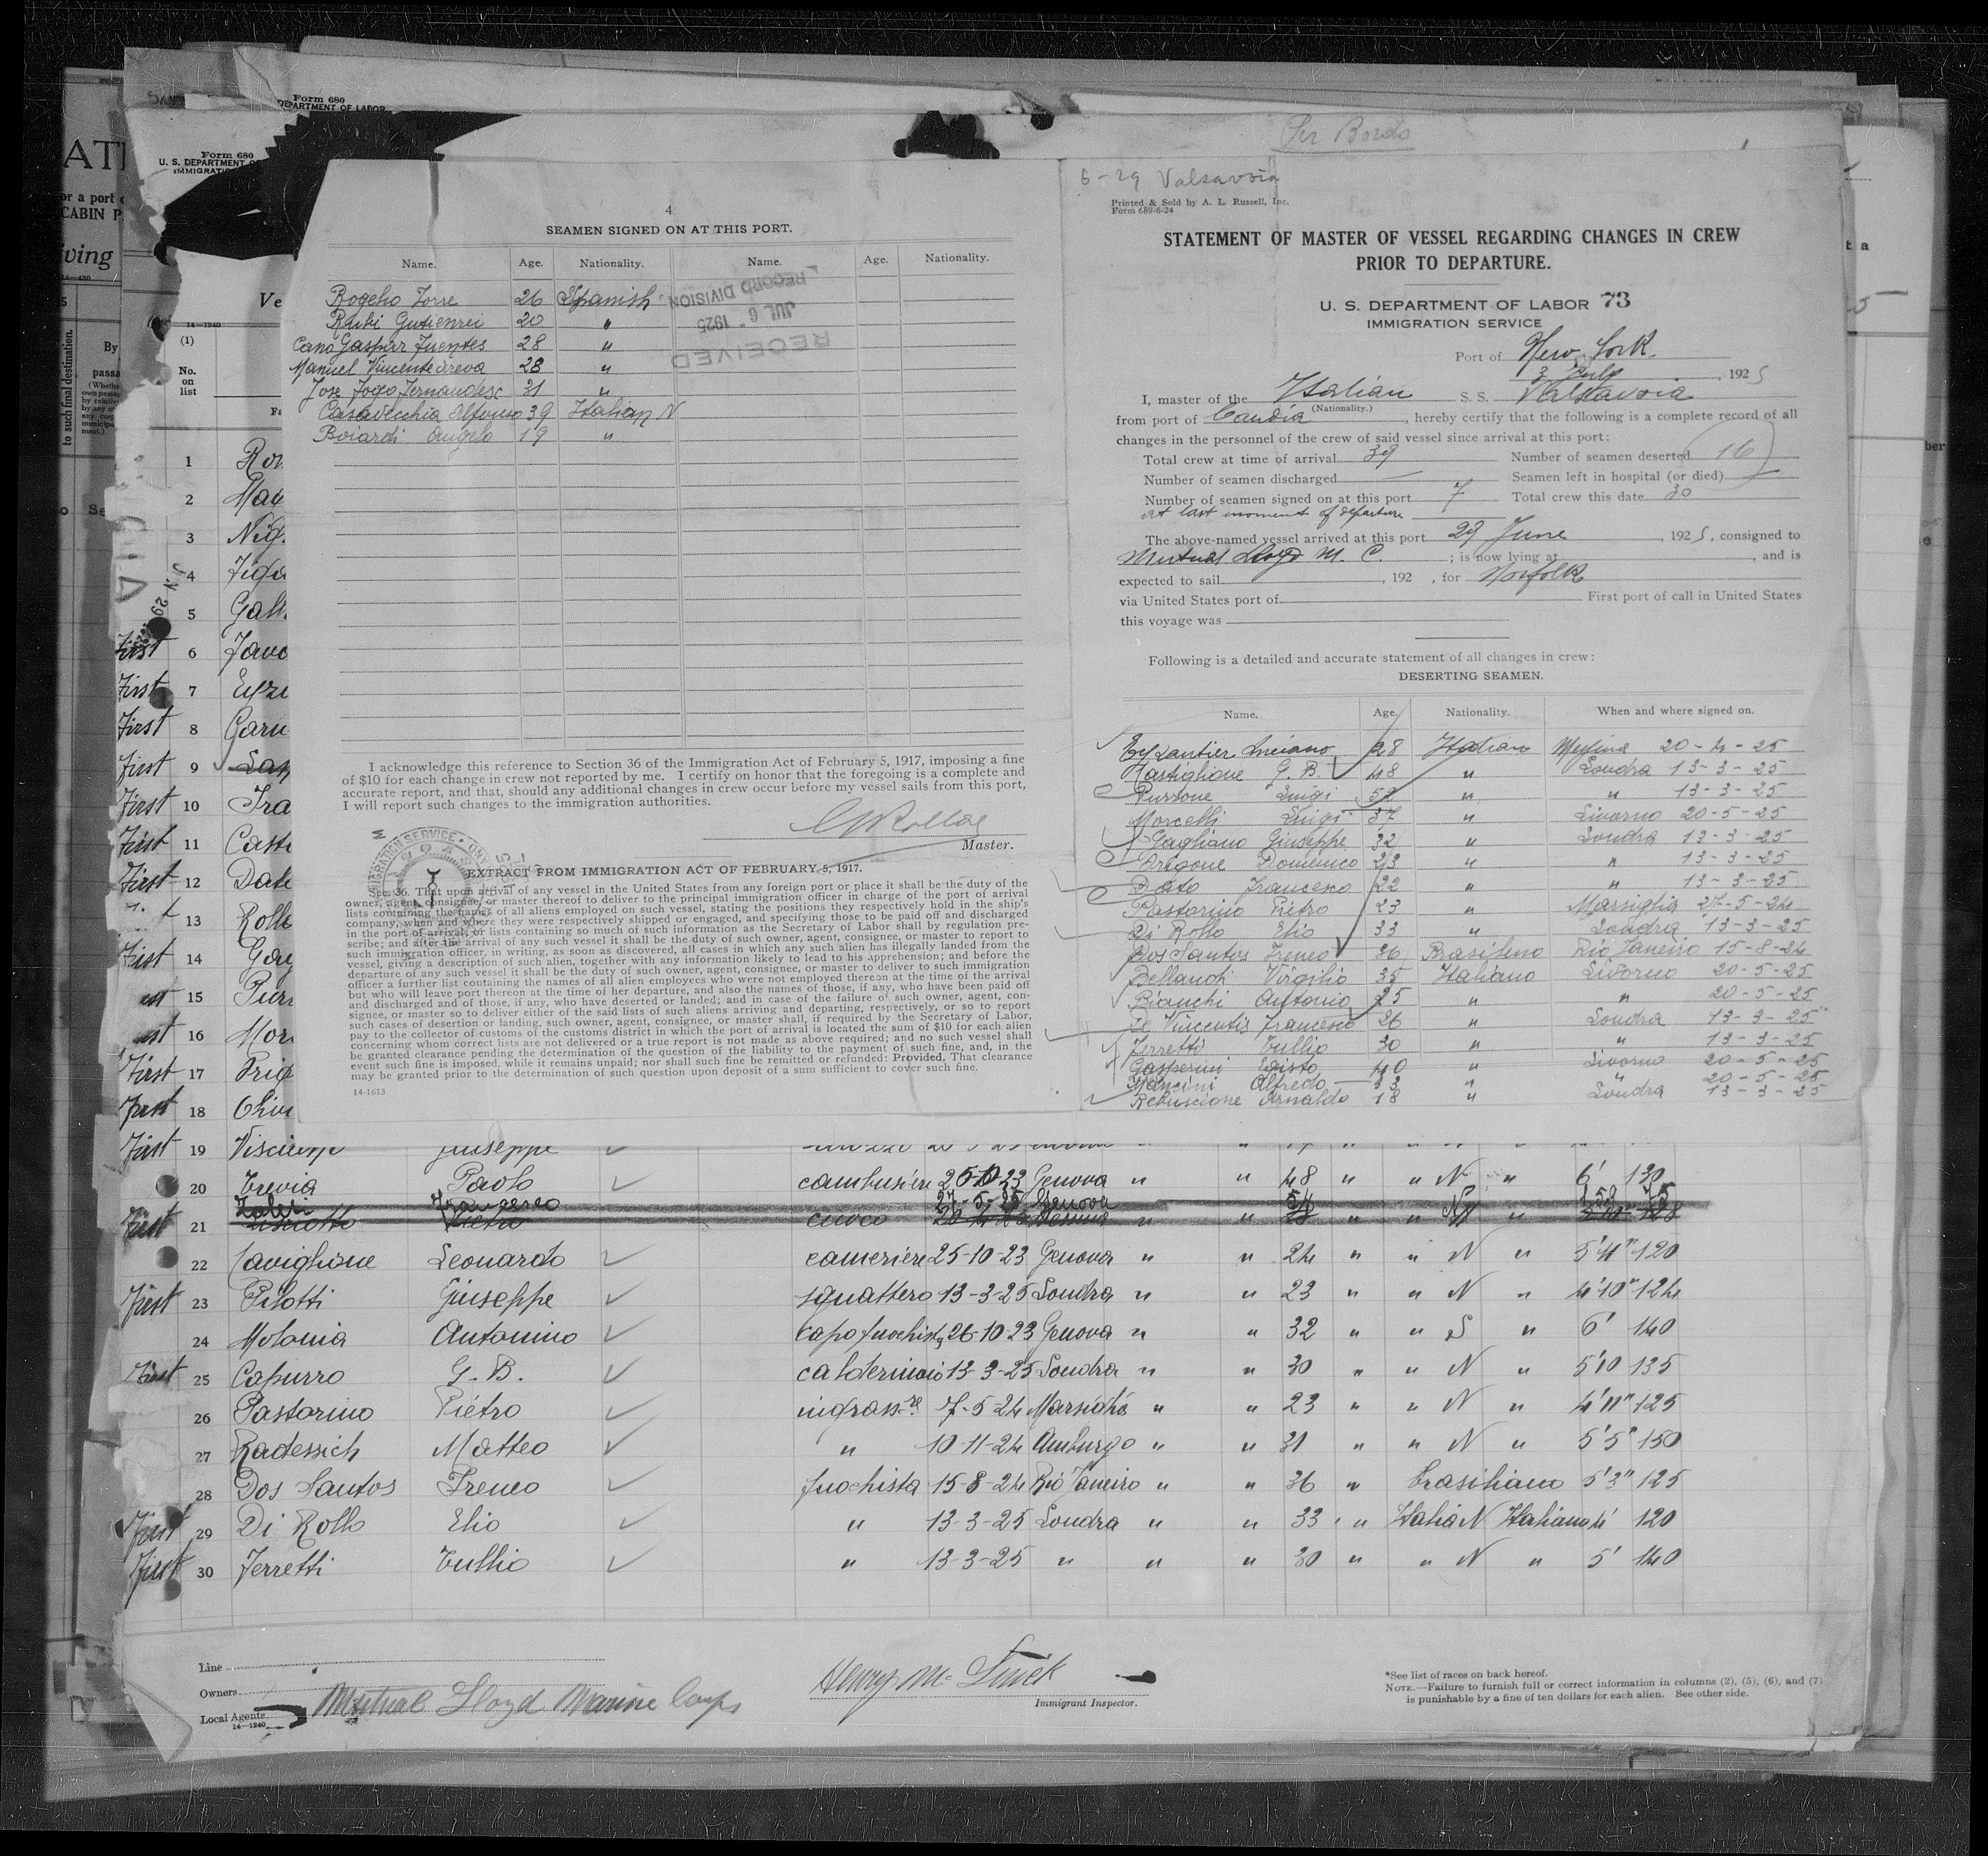 Per Bordo
Form 680
DEPARTMENT OF LABOR
Form 680
U. S. DEPARTMENT O
IMMIGRATIO
4
SEAMEN SIGNED ON AT THIS PORT.
Name. Age. Nationality. Name. Age. Nationality.
Rogelio Torre 26 Spanish
Gutierrei 20 "
Cano Gaspar Fuentes 28 "
Manuel Vincente 28 "
Jose Fernandesc 31 "
Casavecchia Alfonso 39 Italian N
Boiardi Angelo 19 "
RECEIVED
JUL 6 1925
RECORD DIVISION
I acknowledge this reference to Section 36 of the Immigration Act of February 5, 1917, imposing a fine
of $10 for each change in crew not reported by me. I certify on honor that the foregoing is a complete and
accurate report, and that, should any additional changes in crew occur before my vessel sails from this port,
I will report such changes to the immigration authorities.
Master.
EXTRACT FROM IMMIGRATION ACT OF FEBRUARY 5, 1917.
Sec. 36. That upon arrival of any vessel in the United States from any foreign port or place it shall be the duty of the
owner, agent, consignee, or master thereof to deliver to the principal immigration officer in charge of the port of arrival
lists containing the names of all aliens employed on such vessel, stating the positions they respectively hold in the ship's
company, when and where they were respectively shipped or engaged, and specifying those to be paid off and discharged
in the port of arrival; or lists containing so much of such information as the Secretary of Labor shall by regulation pre-
scribe; and after the arrival of any such vessel it shall be the duty of such owner, agent, consignee, or master to report to
such immigration officer, in writing, as soon as discovered, all cases in which any such alien has illegally landed from the
vessel, giving a description of such alien, together with any information likely to lead to his apprehension; and before the
departure of any such vessel it shall be the duty of such owner, agent, consignee, or master to deliver to such immigration
officer a further list containing the names of all alien employees who were not employed thereon at the time of the arrival
but who will leave port thereon at the time of her departure, and also the names of those, if any, who have been paid off
and discharged and of those, if any, who have deserted or landed; and in case of the failure of such owner, agent, con-
signee, or master so to deliver either of the said lists of such aliens arriving and departing, respectively, or so to report
such cases of desertion or landing, such owner, agent, consignee, or master shall, if required by the Secretary of Labor,
pay to the collector of customs of the customs district in which the port of arrival is located the sum of $10 for each alien
concerning whom correct lists are not delivered or a true report is not made as above required; and no such vessel shall
be granted clearance pending the determination of the question of the liability to the payment of such fine, and, in the
event such fine is imposed, while it remains unpaid; nor shall such fine be remitted or refunded: Provided, That clearance
may be granted prior to the determination of such question upon deposit of a sum sufficient to cover such fine.
14-1613
6-29 Valsavoia
Printed & Sold by A. L. Russell, Inc.
Form 689-6-24
STATEMENT OF MASTER OF VESSEL REGARDING CHANGES IN CREW
PRIOR TO DEPARTURE.
U. S. DEPARTMENT OF LABOR 73
IMMIGRATION SERVICE
Port of New York
3 July, 1925
I, master of the Italian S. S. Valsavoia
(Nationality.)
from port of Candia, hereby certify that the following is a complete record of all
changes in the personnel of the crew of said vessel since arrival at this port:
Total crew at time of arrival 39 Number of seamen deserted 16
Number of seamen discharged — Seamen left in hospital (or died)
Number of seamen signed on at this port 7 Total crew this date 30
at last moment of departure
The above-named vessel arrived at this port 29 June, 1925, consigned to
Mutual Lloyd M. C.; is now lying at, and is
expected to sail, 192 , for Norfolk
via United States port of First port of call in United States
this voyage was
Following is a detailed and accurate statement of all changes in crew:
DESERTING SEAMEN.
Name. Age. Nationality. When and where signed on.
Luciano 28 Italian Messina 20-4-25
Castiglione G. B. 48 " Londra 13-3-25
Purrone Luigi 52 " " 13-3-25
Morcelli Luigi 37 " Livorno 20-5-25
Gagliano Giuseppe 32 " Londra 13-3-25
Domenico 23 " " 13-3-25
Dato Francesco 22 " " 13-3-25
Pastorino Pietro 23 " Marsiglia 27-5-24
Di Rollo Elio 33 " Londra 13-3-25
Dos Santos Ireneo 36 Brasileno Rio Janeiro 15-8-24
Bellandi Virgilio 35 Italiano Livorno 20-5-25
Bianchi Antonio 25 " " 20-5-25
De Vincentis Francesco 26 " Londra 13-3-25
Ferretti Tullio 30 " " 13-3-25
Gasperini Egisto 40 " Livorno 20-5-25
Mancini Alfredo 33 " " 20-5-25
Rebuscione Arnaldo 18 " Londra 13-3-25
(1)
No.
on
list
1
2
3
4
5
First 6
First 7
First 8
First 9
First 10
First 11
First 12 Date
13
First 14
15
16
First 17
First 18
First 19 Giuseppe
20 Trevia Paolo cambusiere 25-10-23 Genova " " 48 " " N " 6' 130
First 21 Francesco cuoco 27-5-25 Genova
22 Caviglione Leonardo cameriere 25-10-23 Genova " " 24 " " N " 5'4" 120
First 23 Pilotti Giuseppe squattero 13-3-25 Londra " " 23 " " N " 4'10" 124
24 Molonia Antonino capo fuochista 26-10-23 Genova " " 32 " " S " 6' 140
First 25 Capurro G. B. 13-3-25 Londra " " 30 " " N " 5'10 135
26 Pastorino Pietro ingrass.re 7-5-24 Marsiglia " " 23 " " N " 4'11" 125
27 Radessich Matteo " 10-11-24 Amburgo " " 31 " " N " 5'5" 150
28 Dos Santos Ireneo fuochista 15-8-24 Rio Janeiro " " 36 " brasiliano 5'3" 125
First 29 Di Rollo Elio " 13-3-25 Londra " " 33 " " Italia N Italiano 120
First 30 Ferretti Tullio " 13-3-25 " " " 30 " " N " 5' 140
Line
Owners
Local Agents Mutual Lloyd Marine Corps
14-1240
Immigrant Inspector.
*See list of races on back hereof.
NOTE.—Failure to furnish full or correct information in columns (2), (5), (6), and (7)
is punishable by a fine of ten dollars for each alien. See other side.